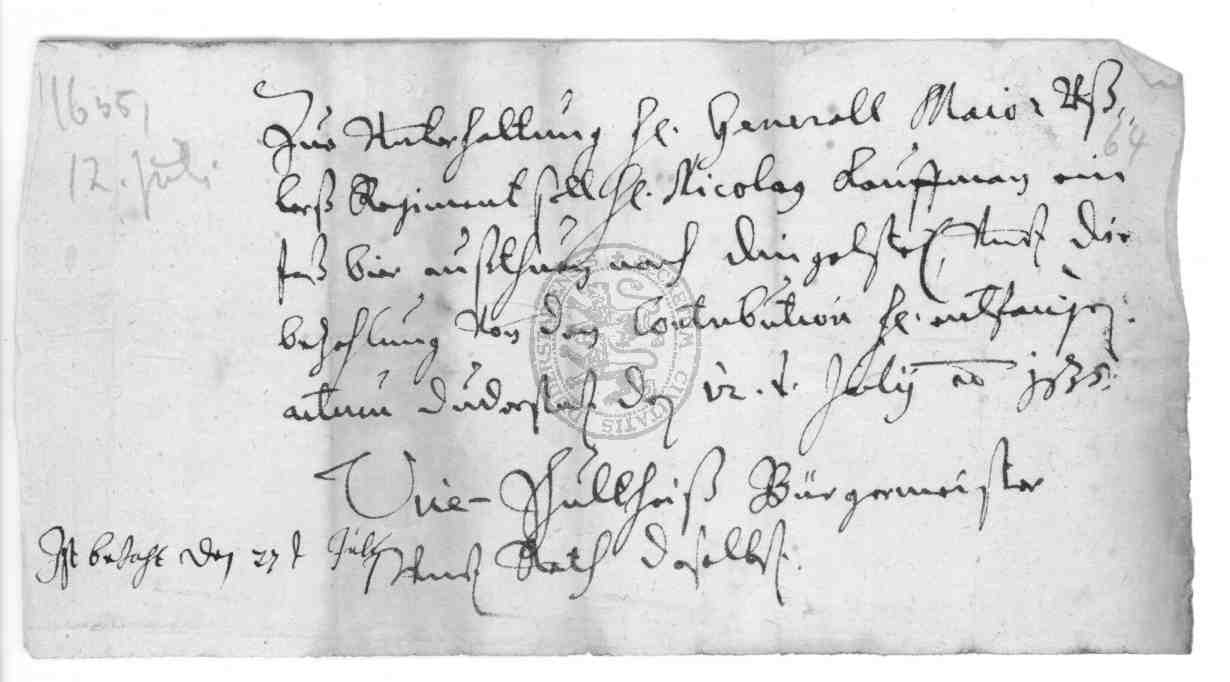 1635,
12. Juli.
64
Zur Unterhaltung H. Generall Maior Uß,,
lerß Regiment soll H. Nicolaß Kauffman ein
faß bier außthuen nach Dingelstet, Undt die
bezahlung Von den Contribution H. entfangen.
actum Duderstat den 12. t. July ao 1635.
Vice-Schultheiß Bürgermeister
Undt Rath daselbst.
Ist bezahlt den 27 t July